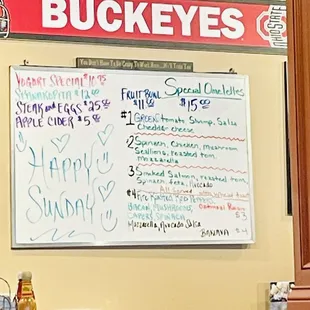 BUCKEYES
OHIO STATE
You Don't Have To Be Crazy To Work Here
YOGURT SPECIAL $10.95
SPANAKOPITA $12.00
STEAK and EGGS $25.00
APPLE CIDER $5.00
HAPPY
SUNDAY
Special Omelettes
FRUIT BOWL
$11.00
$15.00
#1 GREEK tomato Shrimp, Salsa
Cheddar cheese
2 Spinach, Chicken, Mushroom
Scallions, roasted tom.
Mozzarella
3 Smoked Salmon, roasted tom,
Spinach feta, Avocado
All Served
#4 Roasted Red Peppers
BACON, MUSHROOMS
CAPERS SPINACH
$3
Mozzarella, Avocado Salsa
BANANA $4